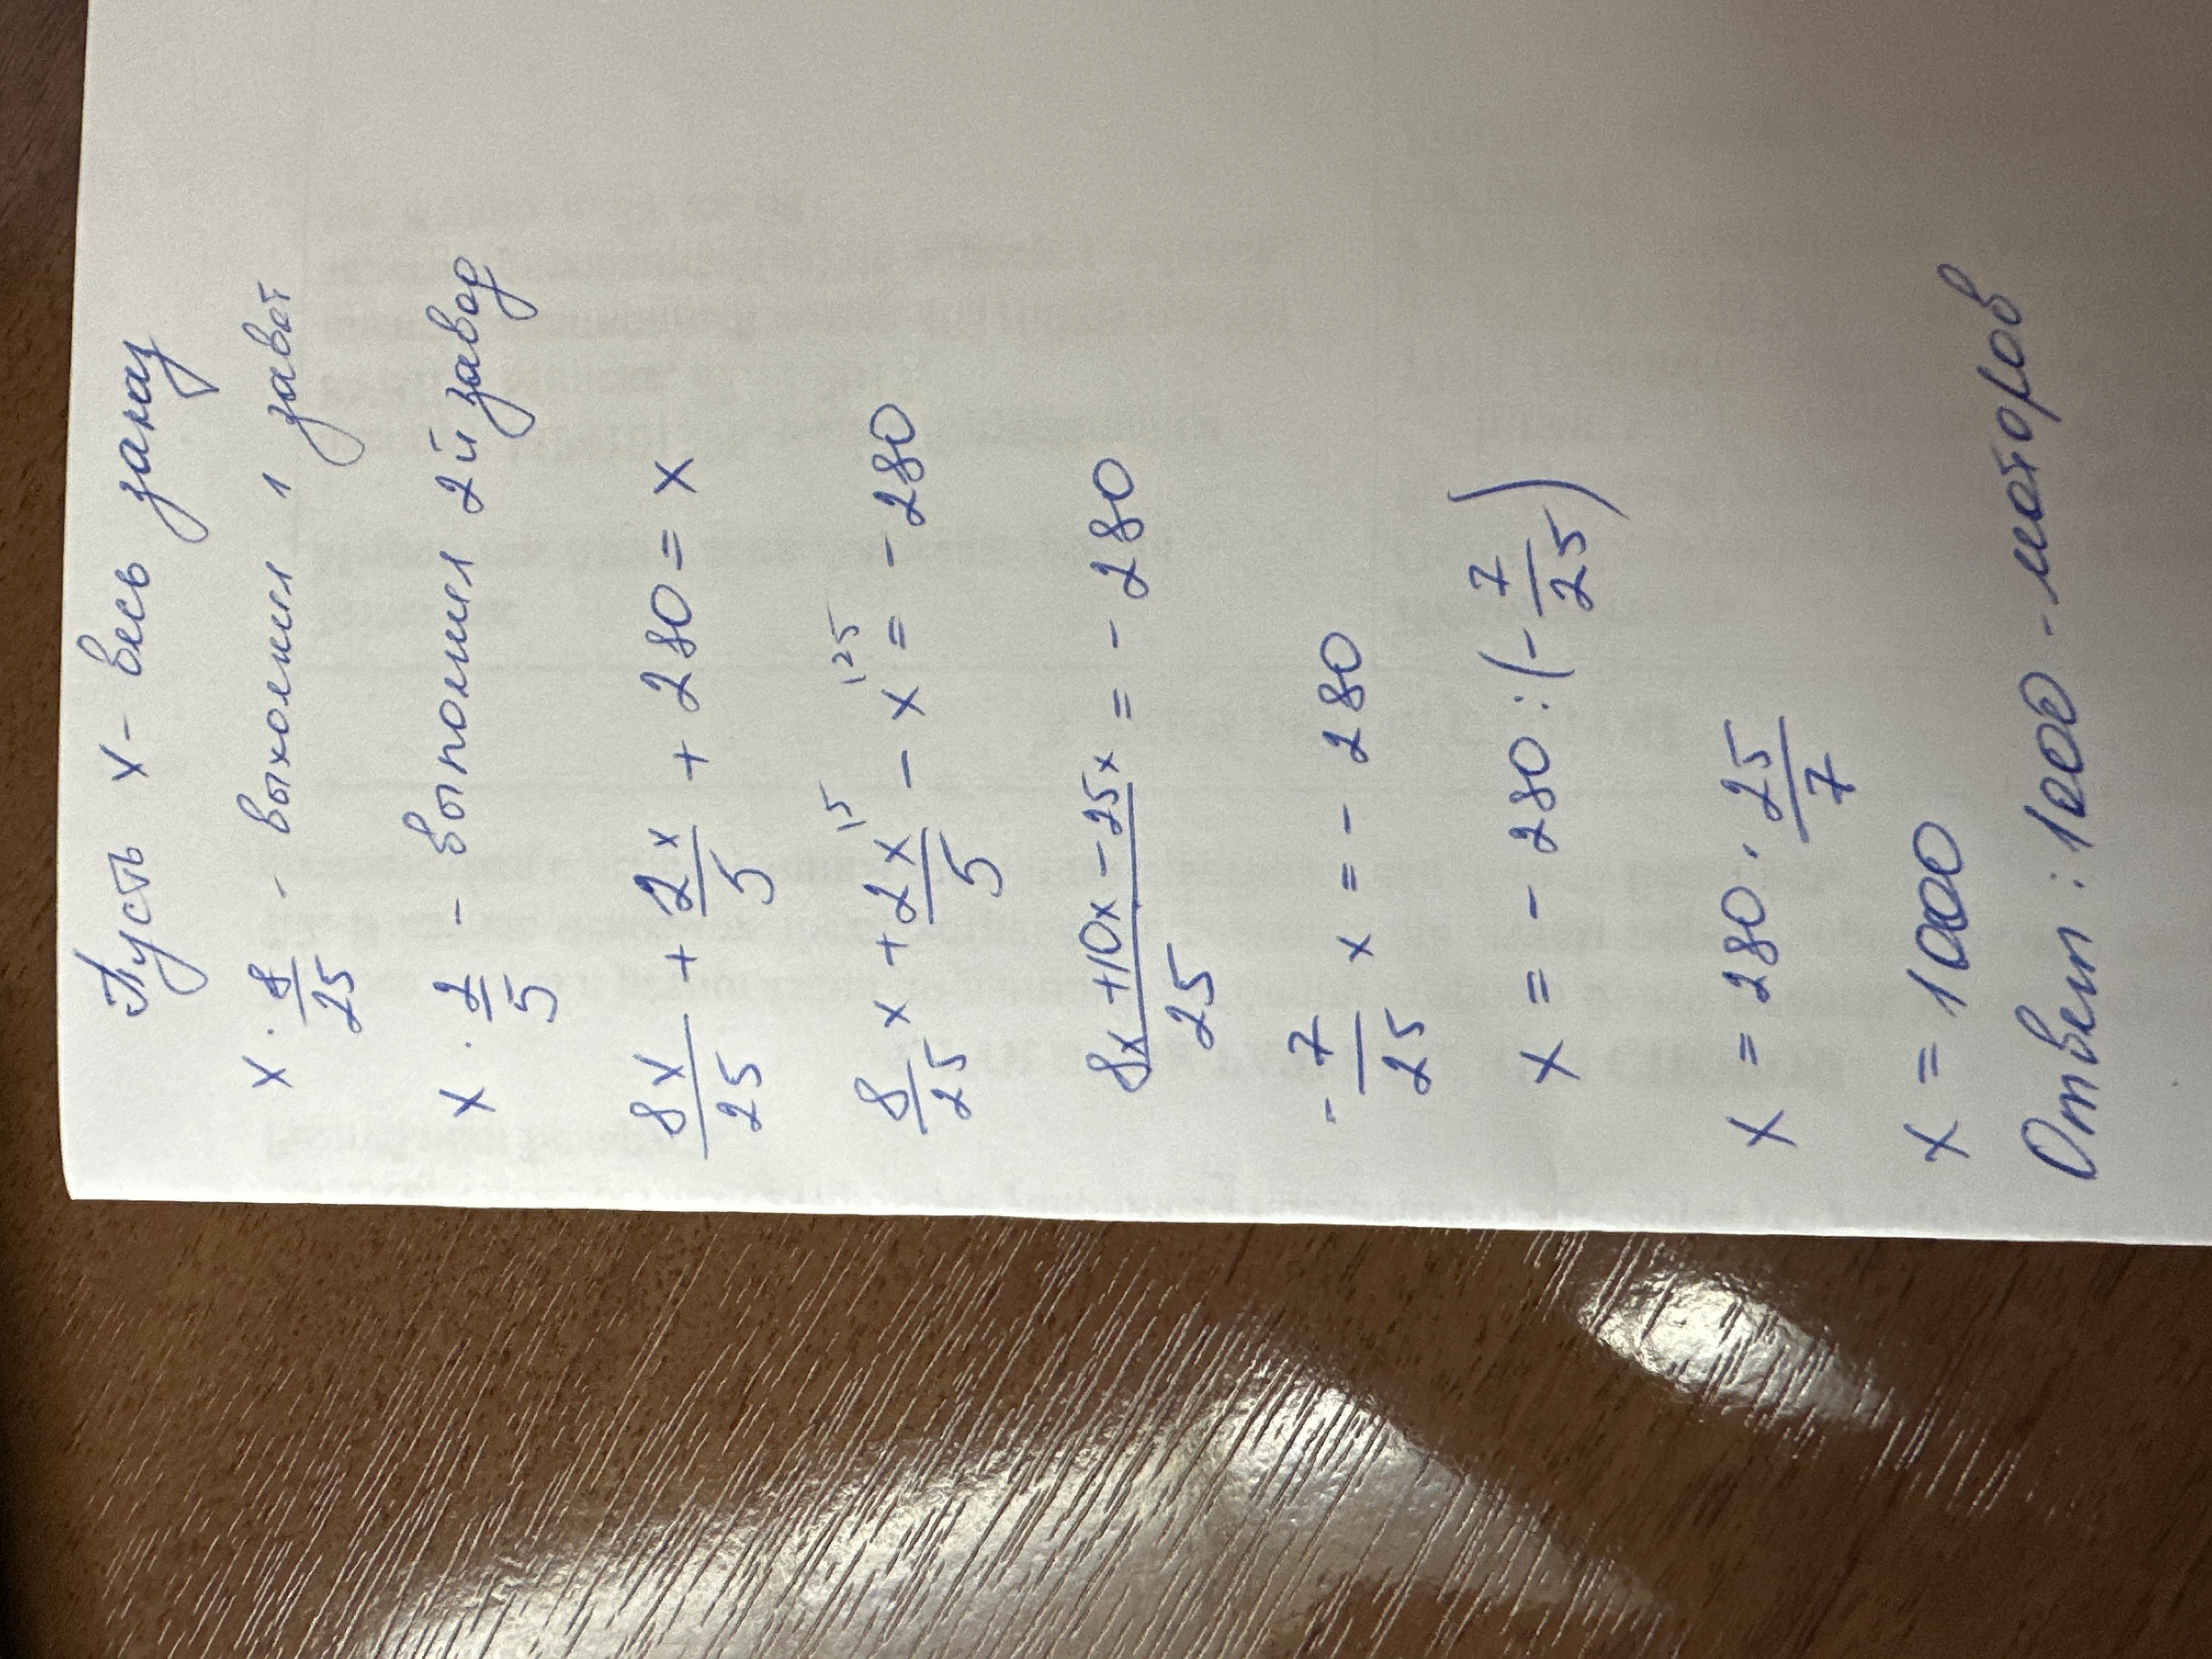 Пусть x - весь заказ
x · 8/25 - выполнил 1 завод
x · 2/5 - выполнил 2й завод
8x/25 + 2x/5 + 280 = x
8/25 x + 2x/5 |5 - x |25 = - 280
8x + 10x - 25x/25 = - 280
- 7/25 x = - 280
x = - 280 : (- 7/25)
x = 280 · 25/7
x = 1000
Ответ : 1000 - моторов